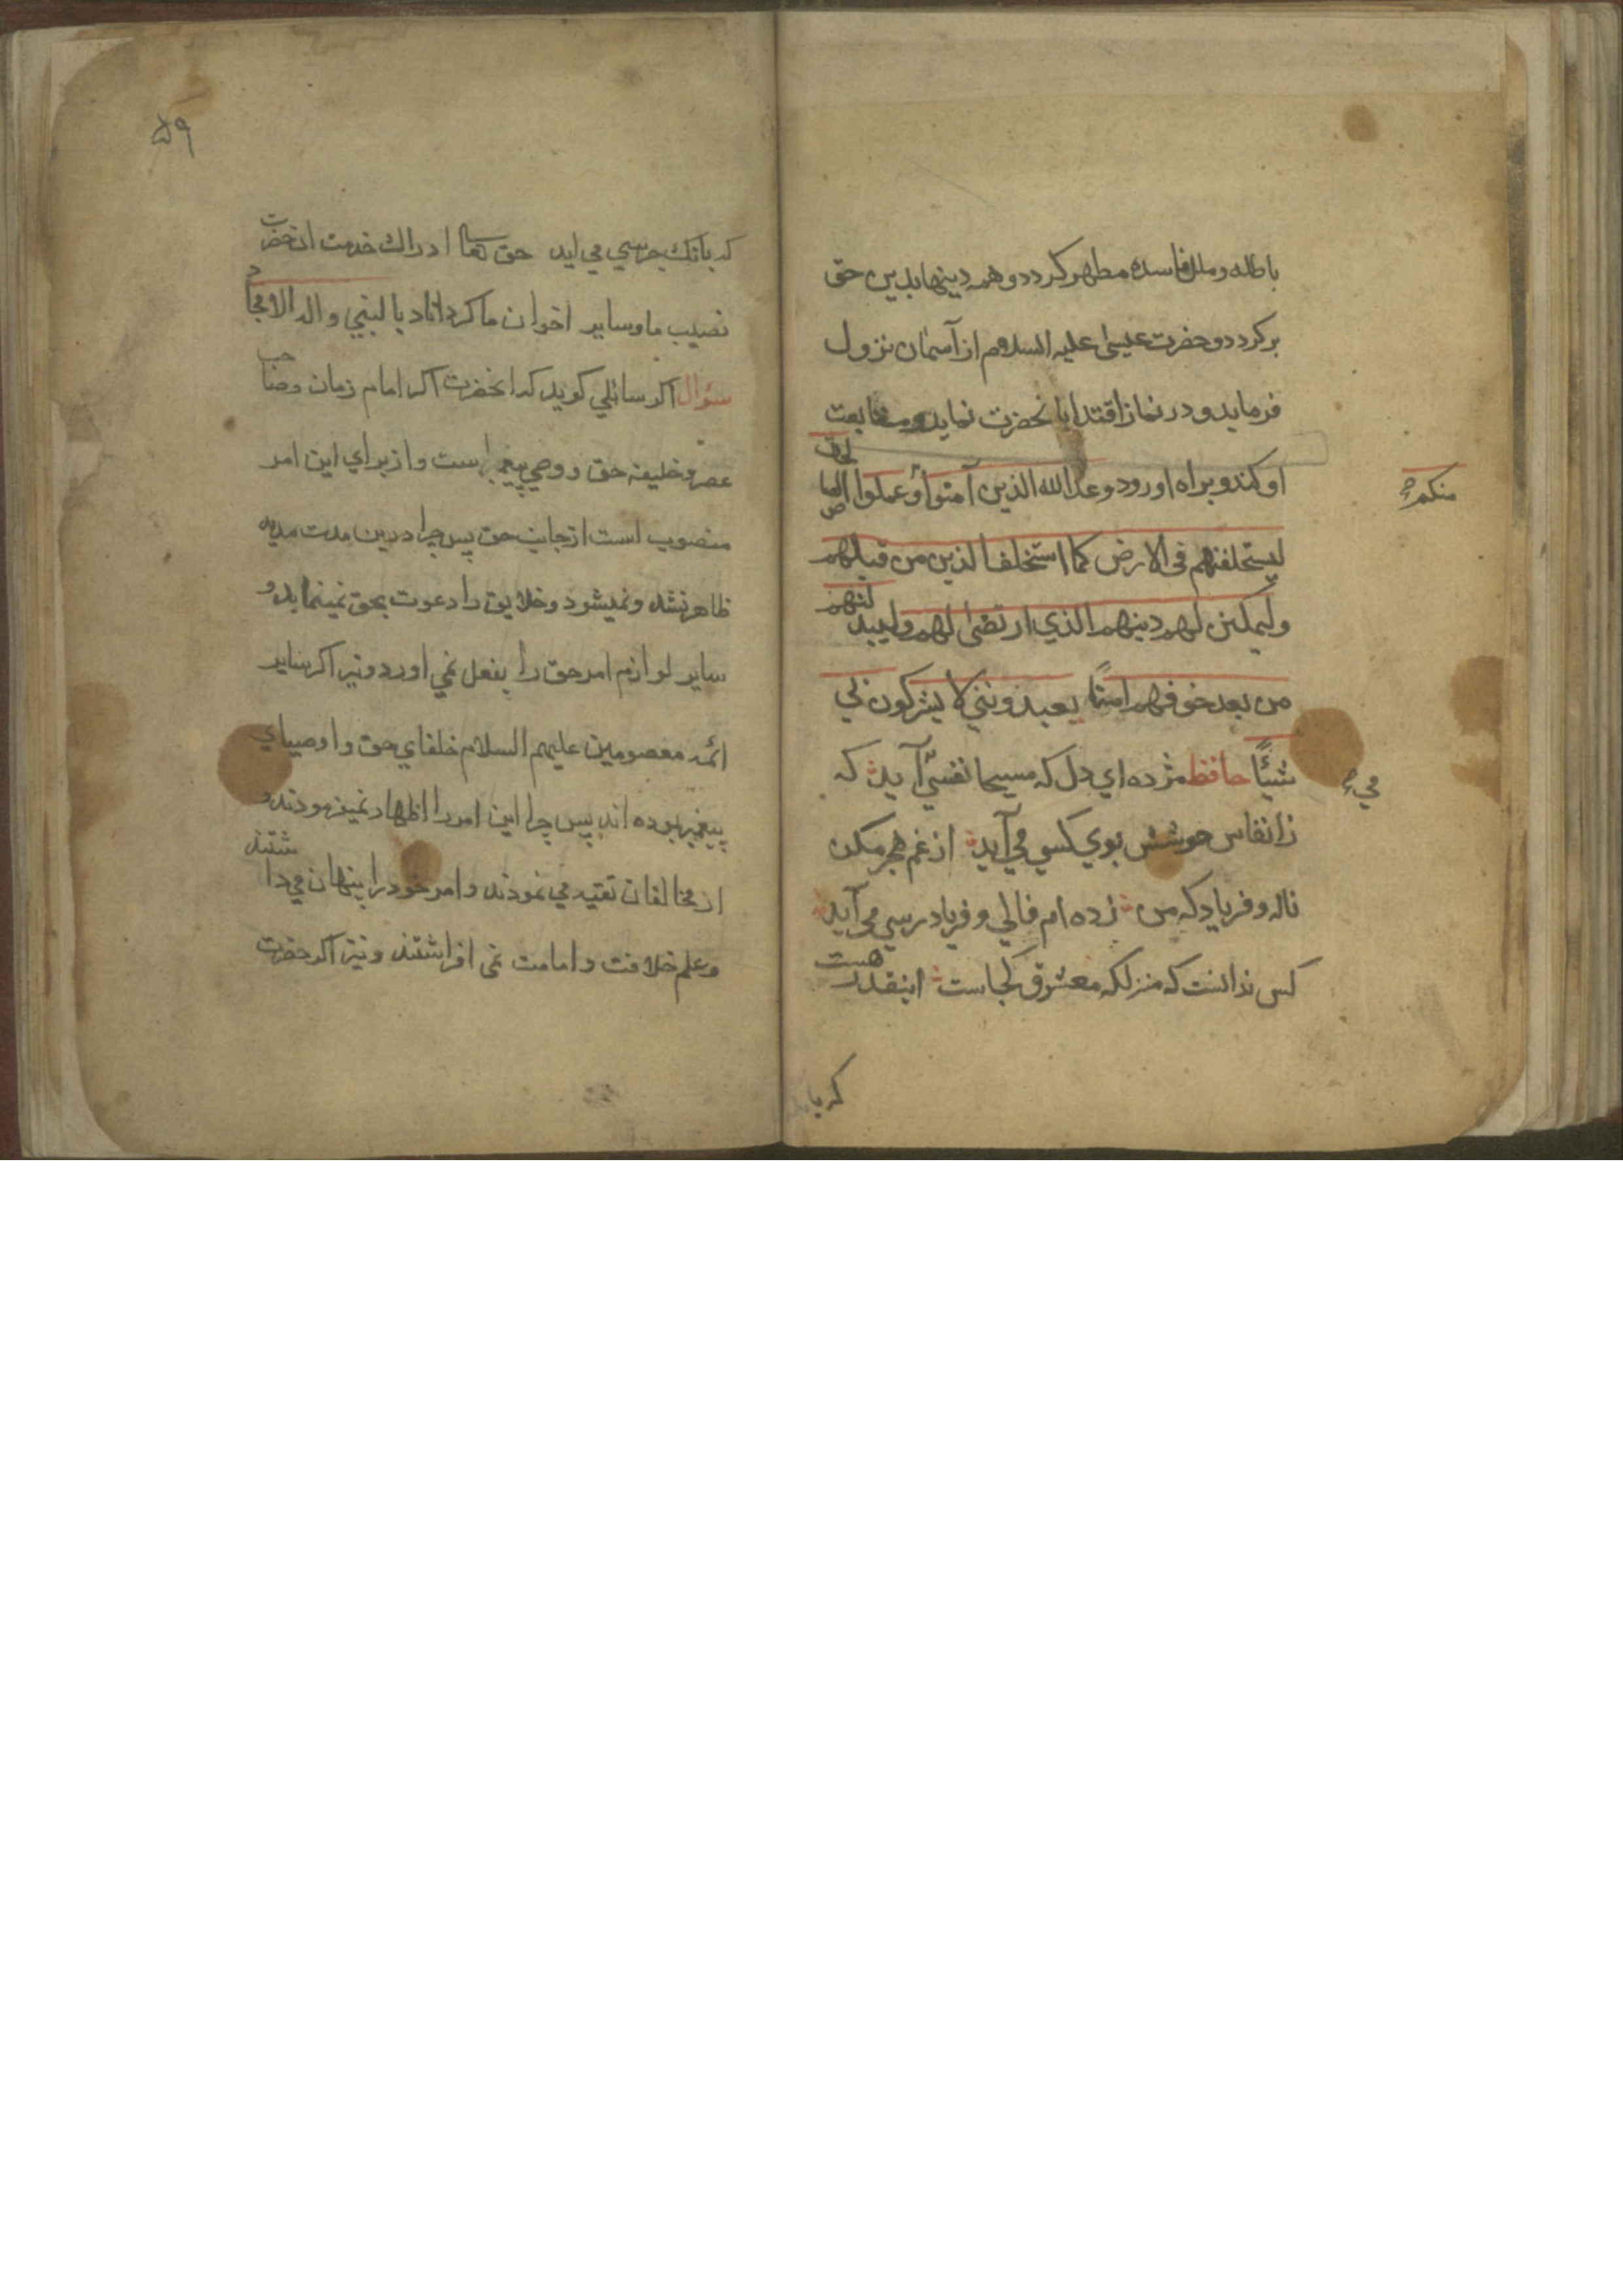 باطله و ملل فاسده مطهر كردد و همه دينها بدين حق
بركردد و حضرت عيسى عليه السلام از آسمان نزول
فرمايد و در نماز اقتدا بانحضرت نمايد و متابعت
او كند و براه او رود وعد الله الذين آمنوا و عملوا الصالحات
منكم
ليستخلفنهم فى الارض كما استخلف الذين من قبلهم
وليمكنن لهم دينهم الذي ارتضى لهم وليبدلنهم
من بعد خوفهم امنًا يعبدونني لا يشركون بي
شيئًا حافظ مژده اي دل كه مسيحا نفسي آيد كه
مي
زانفاس خوشش بوي كسي مي آيد از غم هجر مكن
ناله و فرياد كه من زده ام فالي و فرياد رسي مي آيد
كس ندانست كه منزلكه معشوق كجاست اينقدر هست
كه با
۵۹
كه بانك جرسي مي ايد حق تعالى ادراك خدمت انحضرت
نصيب ما و ساير اخوان ما كرداناد بالنبي و اله الامجاد
سئوال اكر سائلي كويد كه انحضرت اكر امام زمان و صاحب
عصر و خليفه حق و وصي پيغمبر است و از براي اين امر
منصوب است از جانب حق پس چرا درين مدت مديد
ظاهر نشد و نميشود و خلايق را دعوت بحق نمينمايد و
ساير لوازم امر حق را بفعل نمي اورد و نيز اكر ساير
ائمه معصومين عليهم السلام خلفاي حق و اوصياي
پيغمبر بوده اند پس چرا اين امر را اظهار نميفرمودند و
از مخالفان تقيه مي نمودند و امر خود را پنهان مي داشتند
و علم خلافت و امامت نمى افراشتند و نيز اكر حضرت